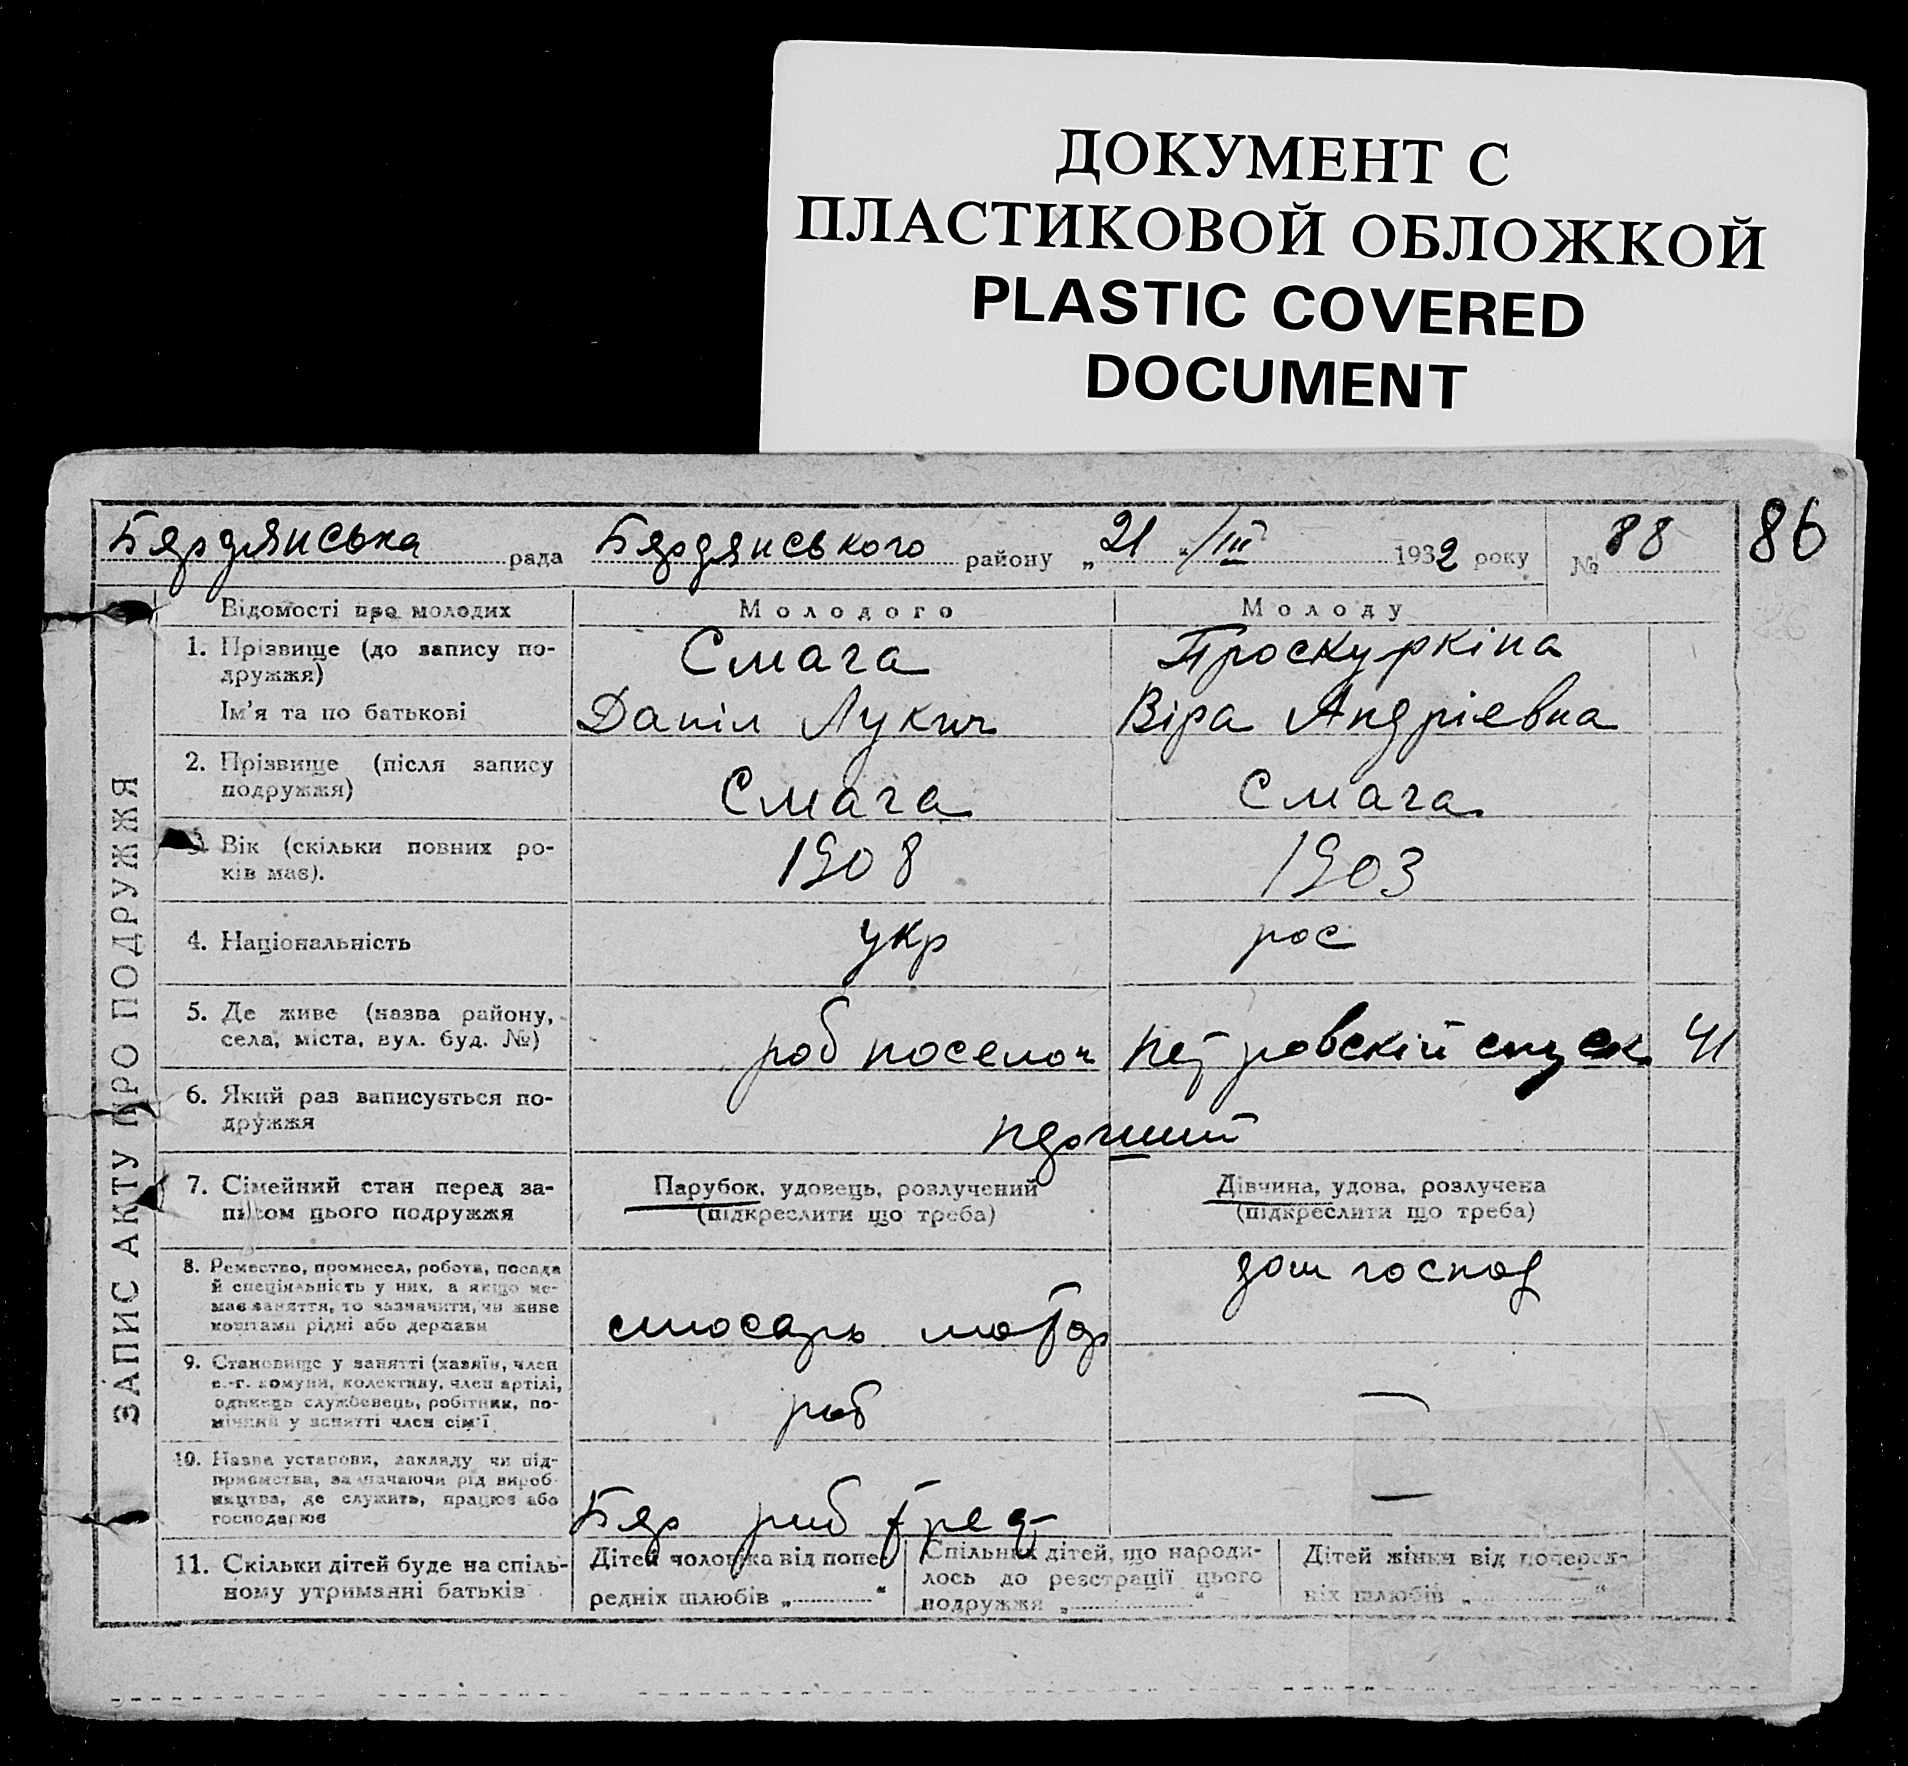 ДОКУМЕНТ С
ПЛАСТИКОВОЙ ОБЛОЖКОЙ
PLASTIC COVERED
DOCUMENT
86
Бердянська рада Бердянського району „21 /III 1932 року № 88
ЗАПИС АКТУ ПРО ПОДРУЖЖЯ
Відомості про молодих
Молодого
Молоду
1. Прізвище (до запису по-
дружжя)
Ім'я та по батькові
Смага
Даніл Лукич
Проскуркіна
Віра Андрієвна
2. Прізвище (після запису
подружжя)
Смага
Смага
3. Вік (скільки повних ро-
ків має).
1908
1903
4. Національність
укр
рос
5. Де живе (назва району,
села, міста, вул. буд. №)
роб поселок
петровскій спуск 41
6. Який раз записується по-
дружжя
перший
7. Сімейний стан перед за-
писом цього подружжя
Парубок, удовець, розлучений
(підкреслити що треба)
Дівчина, удова, розлучена
(підкреслити що треба)
8. Ремество, промисел, робота, посада
й спеціяльність у них, а якщо не-
має заняття, то зазначити, чи живе
коштами рідні або держави
слюсарь
дом господ
9. Становище у занятті (хазяїн, член
с.-г. комуни, колективу, член артілі,
одинець службовець, робітник, по-
мічний у занятті член сім'ї
роб
—
10. Назва установи, закладу чи під-
приємства, зазначаючи рід вироб-
ництва, де служить, працює або
господарює
Бер
—
11. Скільки дітей буде на спіль-
ному утриманні батьків
Дітей чоловіка від попе-
редніх шлюбів „ “
Спільних дітей, що народи-
лось до реєстрації цього
подружжя „ “
Дітей жінки від поперед-
ніх шлюбів „ “